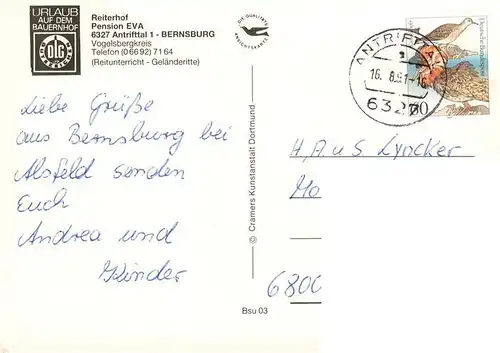 URLAUB
AUF DEM
BAUERNHOF
DLG
Reiterhof
Pension EVA
6327 Antrifttal 1 - BERNSBURG
Vogelsbergkreis
Telefon (0 66 92) 71 64
(Reitunterricht - Geländeritte)
DIE QUALITÄTS
ANSICHTSKARTE
ANTRIFTTA
16. 8.91-16
6327
Deutsche Bundespost
60
Liebe Grüße
aus Bernsburg bei
Alsfeld senden
Euch
Andrea und
Kinder
© Cramers Kunstanstalt Dortmund
H, A u S Lyncker
Mo
6800
Bsu 03